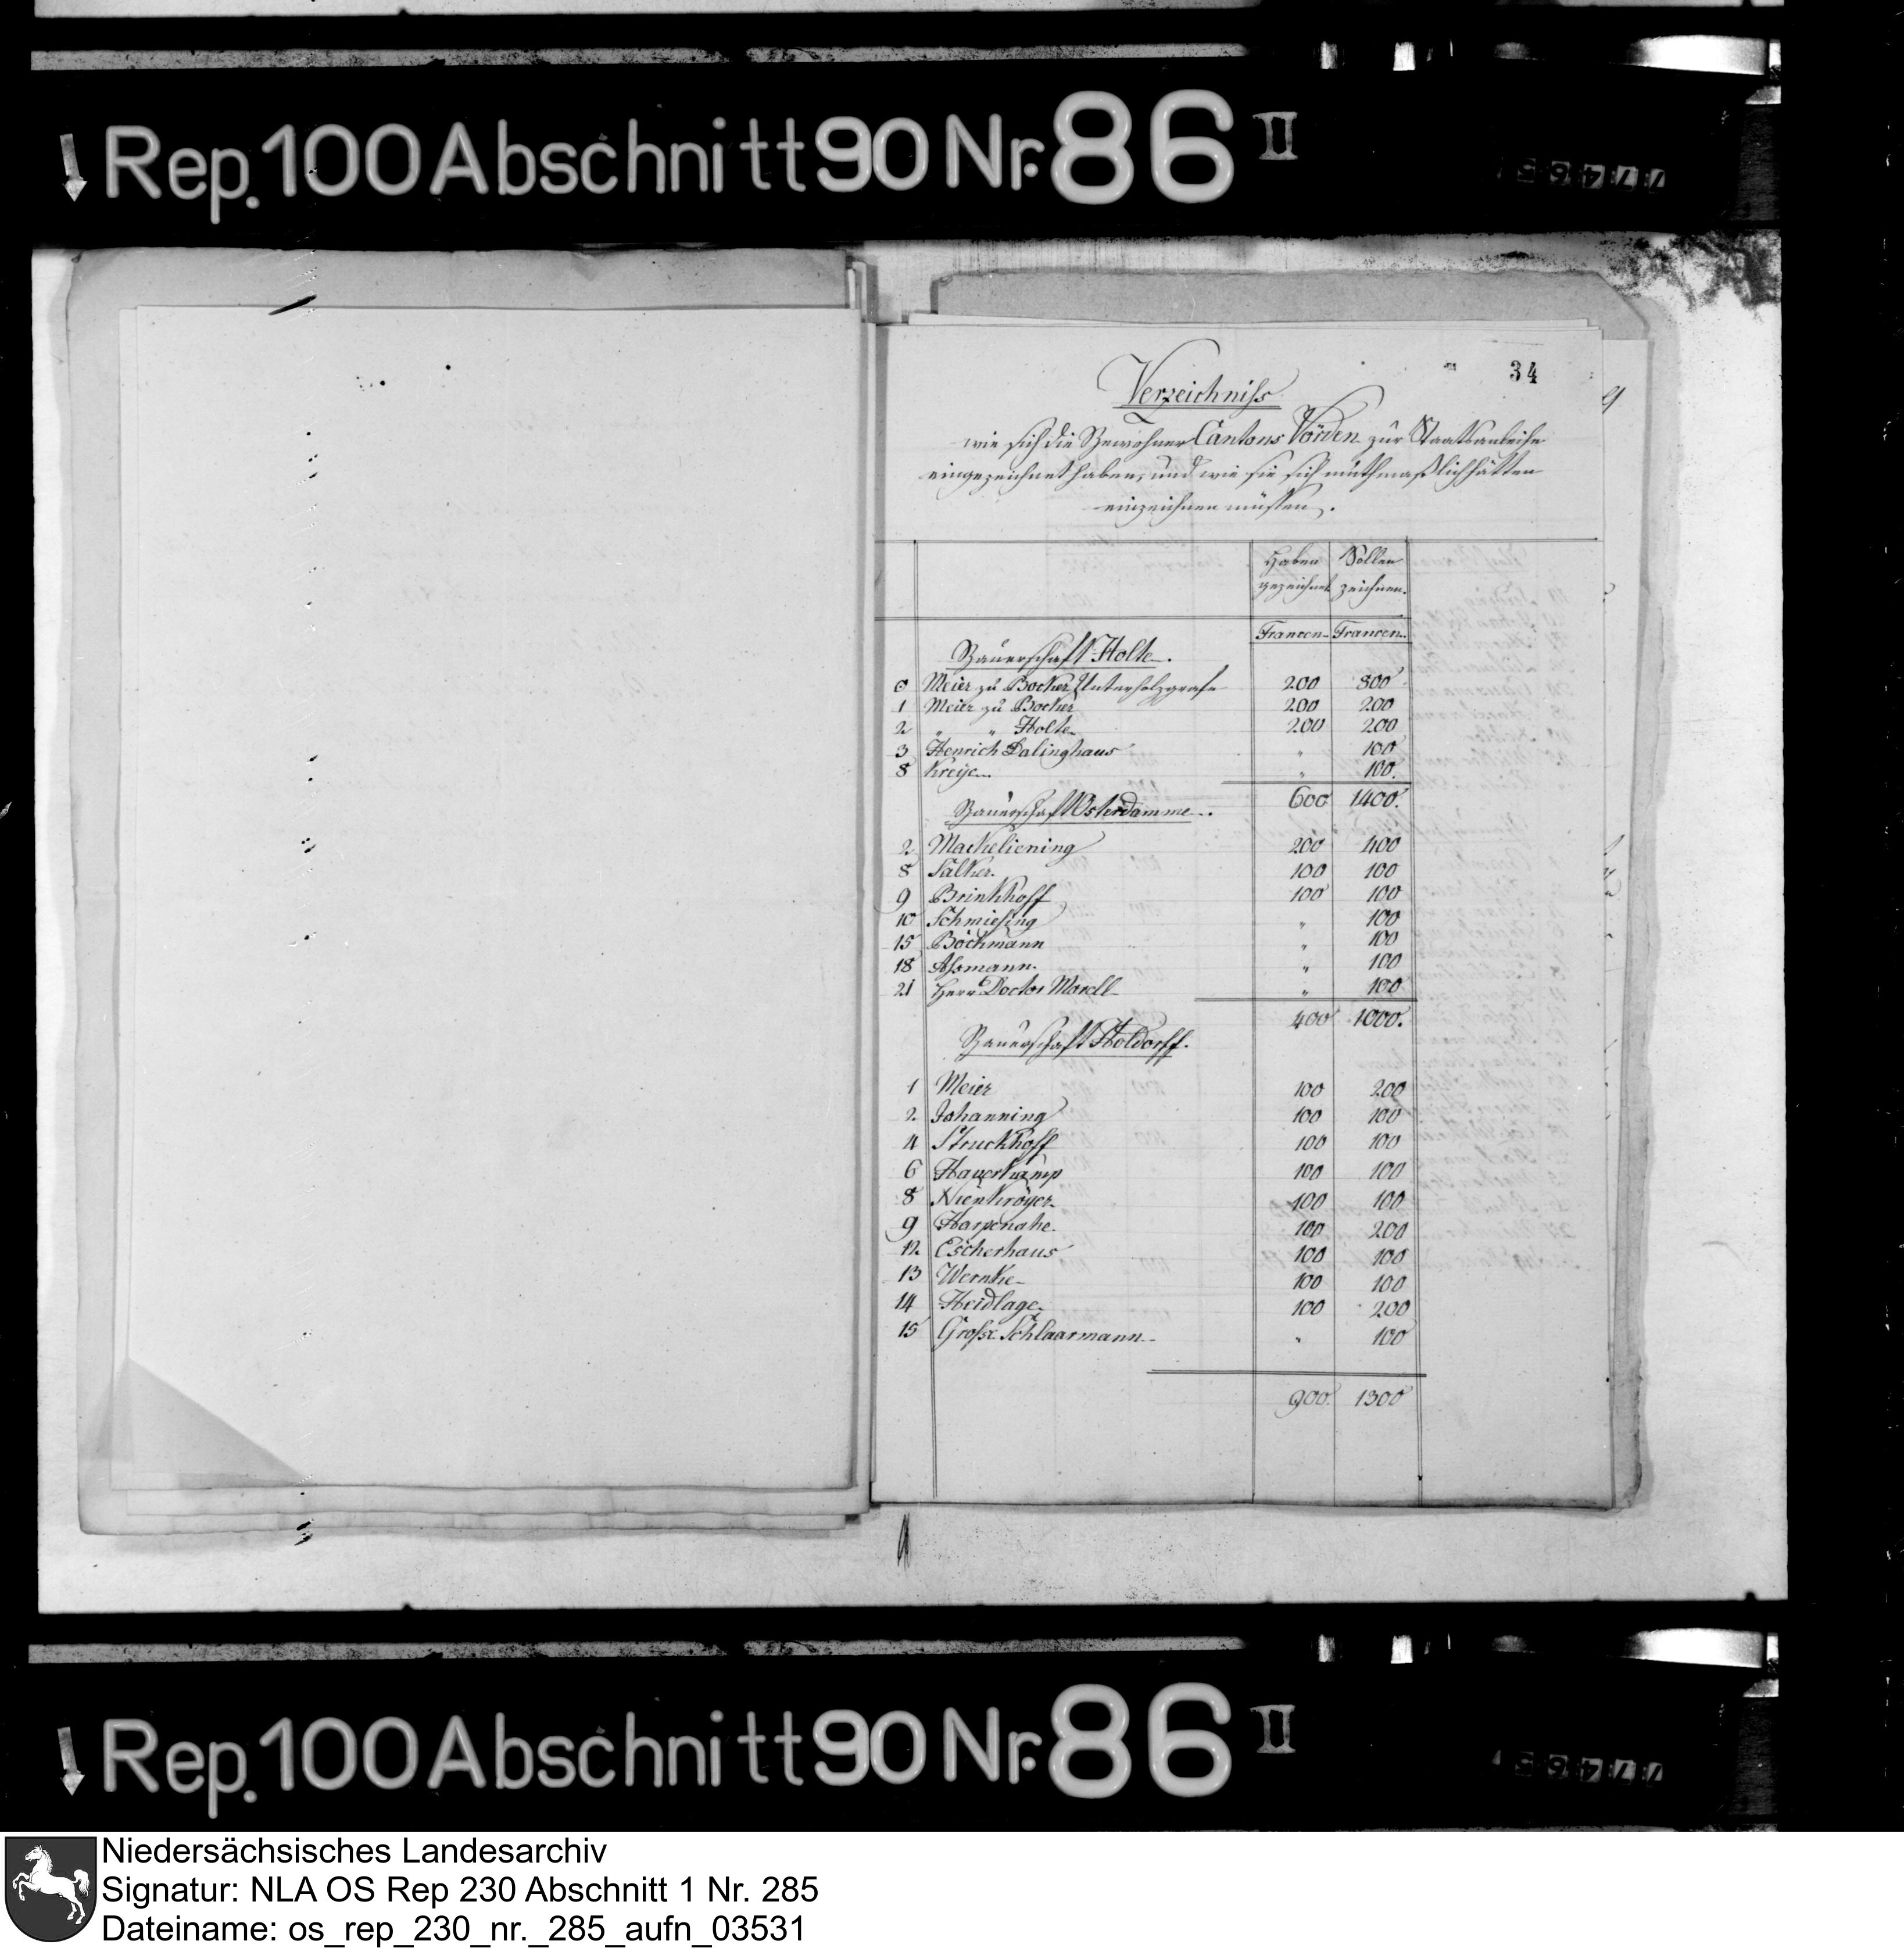 Rep. 100 Abschnitt 90 Nr. 86 II
34
Verzeichniss
wie sich die Bewohner Cantons Vörden zur Staatsanleihe
eingezeichnet haben, und wie sie sich muthmaßlich hätten
einzeichnen müssen.
Haben gezeichnet Sollen zeichnen.
Francen Francen
Bauerschaft Holte.
6 Meier zu Bocker Unterholzgrafe 200 800
1 Meier zu Bocker 200 200
2 " " Holte 200 200
3 Henrich Dalinghaus " 100
8 Kreye " 100.
600 1400.
Bauerschaft Osterdamme.
2 Mackeliening 200 400
8 Falker. 100 100
9 Brinkhoff 100 100
10 Schmiesing " 100
15 Böckmann " 100
18 Assmann. " 100
21 Herr Doctor Morell " 100
400 1000.
Bauerschaft Holdorff.
1 Meier 100 200
2 Johanning 100 100
4 Struckhoff 100 100
6 Haverkamp 100 100
8 Nienkröyer 100 100
9 Harpenahe 100 200
12 Escherhaus 100 100
13 Wernke 100 100
14 Heidlage 100 200
15 Große Schlaarmann " 100
900. 1300
Rep. 100 Abschnitt 90 Nr. 86 II
Niedersächsisches Landesarchiv
Signatur: NLA OS Rep 230 Abschnitt 1 Nr. 285
Dateiname: os_rep_230_nr._285_aufn_03531